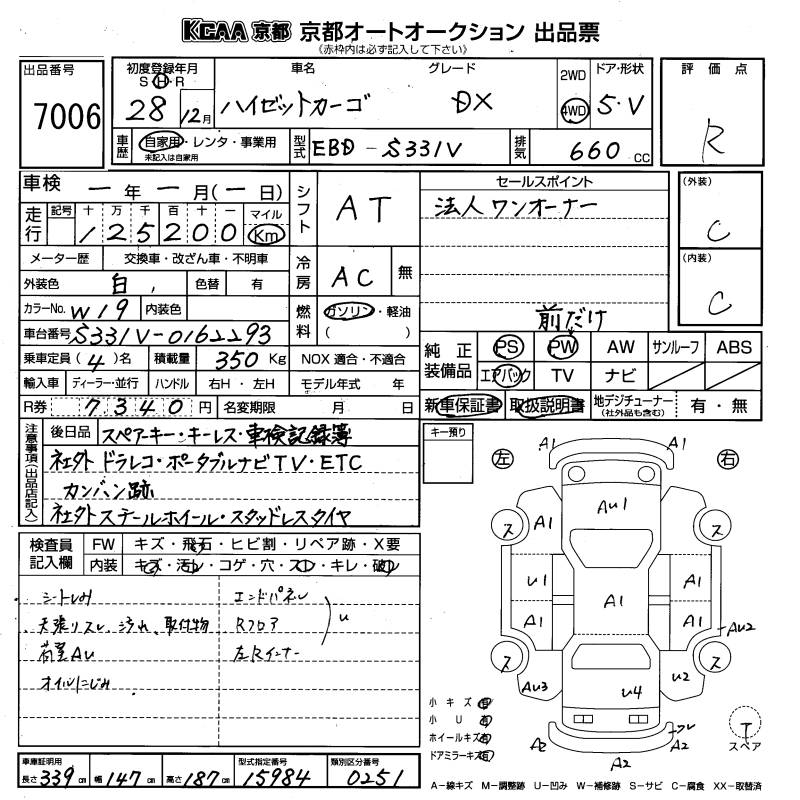 KCAA 京都 京都オートオークション 出品票
《赤枠内は必ず記入して下さい》
出品番号
7006
初度登録年月
S・H・R
28 12月
車名
ハイゼットカーゴ
グレード
DX
2WD
4WD
ドア・形状
5・V
車歴
自家用・レンタ・事業用
未記入は自家用
型式
EBD-S331V
排気
660 CC
評価点
R
車検
一年一月(一日)
走行
記号 十 万 千 百 十 一 マイル
125200 Km
メーター歴 交換車・改ざん車・不明車
外装色 白, 色替 有
カラーNo. W19 内装色
車台番号 S331V-0162293
乗車定員(4)名 積載量 350 Kg
輸入車 ディーラー・並行 ハンドル 右H・左H
R券 7340円 名変期限 月 日
シフト
AT
冷房
AC 無
燃料
ガソリン・軽油
( )
NOX 適合・不適合
モデル年式 年
セールスポイント
法人ワンオーナー
前だけ
(外装)
C
(内装)
C
純正装備品
PS PW AW サンルーフ ABS
エアバック TV ナビ
新車保証書 取扱説明書 地デジチューナー(社外品も含む) 有・無
注意事項(出品店記入)
後日品 スペアーキー・キーレス・車検記録簿
社外ドラレコ・ポータブルナビTV・ETC
カンバン跡
社外スチールホイール・スタッドレスタイヤ
キー預り
検査員記入欄
FW キズ・飛石・ヒビ割・リペア跡・X要
内装 キズ・汚レ・コゲ・穴・スレ・キレ・破レ
シートしみ
天張リスレ、汚れ、取付物
荷室AU
オイルにじみ
エンドパネル
Rフロア
左Rインナー
U
左
右
A1 A1
ス ス
A1 AU1
U1 A1
A1 A1 A1
AU2
ス ス
AU3 U4 U2
A2 A2 フレ A2
小キズ 有
小U 有
ホイールキズ 有
ドアミラーキズ 有
T
スペア
車庫証明用
長さ 339cm 幅 147cm 高さ 187cm
型式指定番号
15984
類別区分番号
0251
A-線キズ M-調整跡 U-凹み W-補修跡 S-サビ C-腐食 XX-取替済